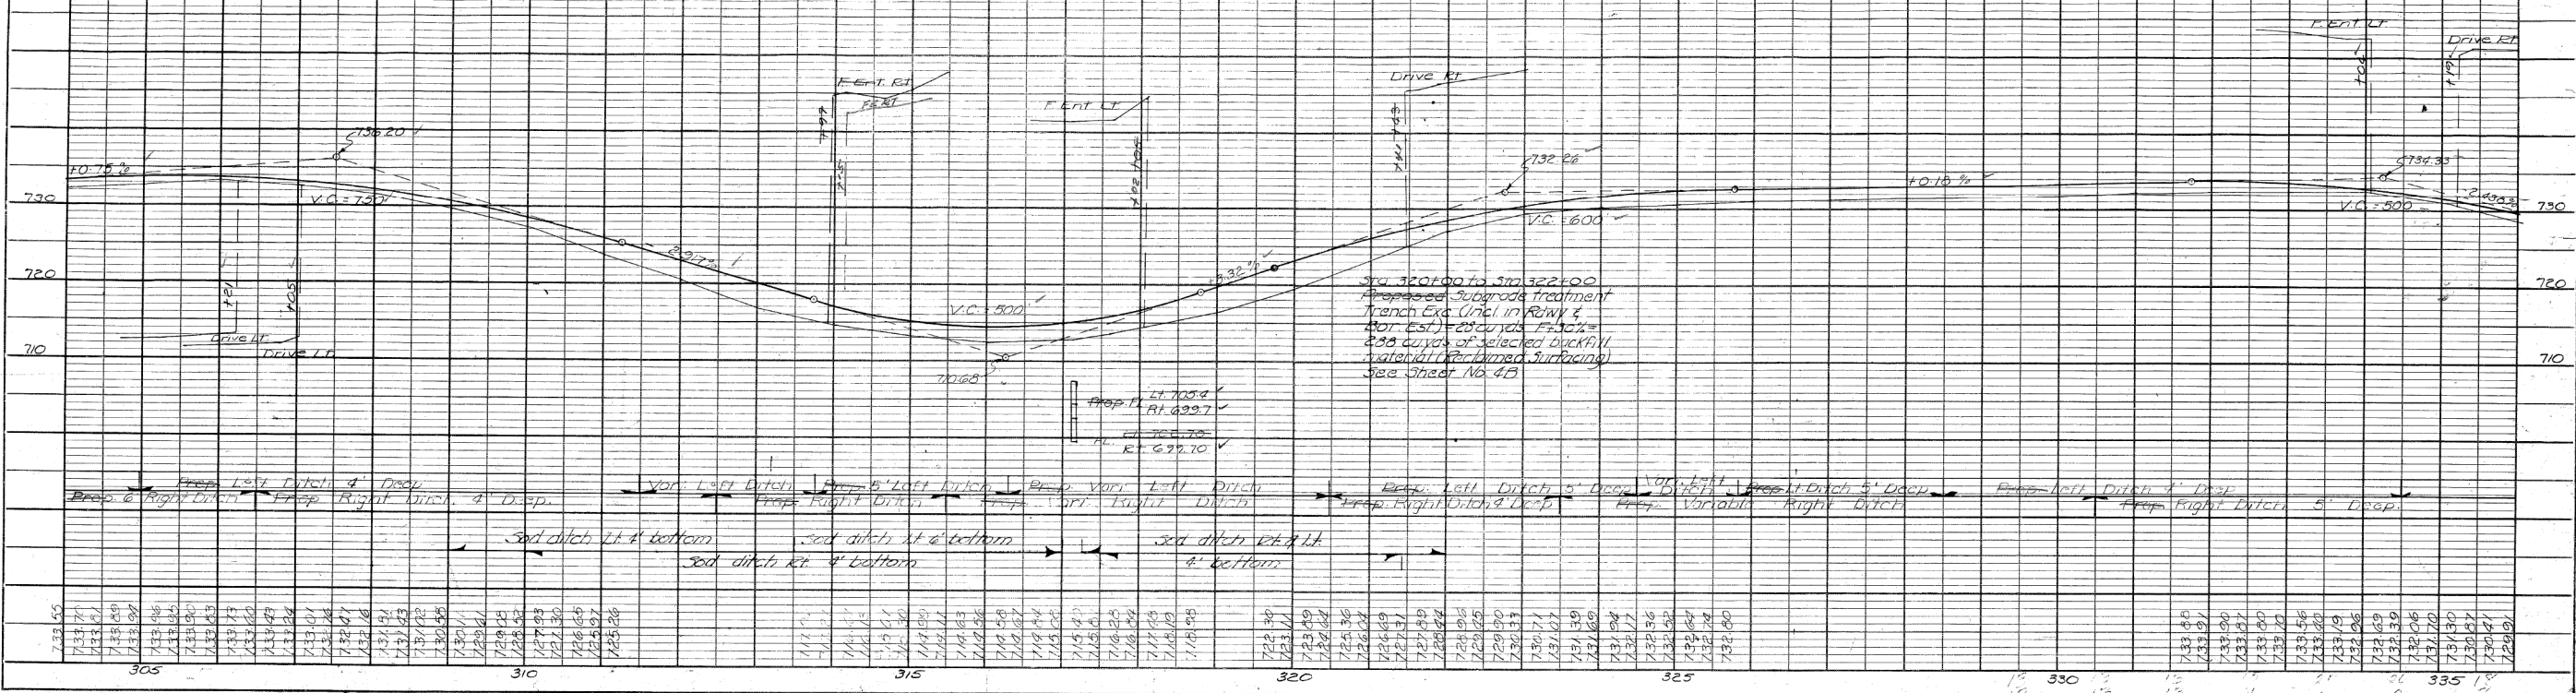 F. Ent Lt
Drive Rt
+06
+19
F. Ent. Rt
Drive Rt
F Ent Lt
+97
+41
+43
736.20
+0.75%
730
V.C. = 750'
732.26
+0.18%
734.33
V.C. = 600'
V.C. = 500
730
720
+21
+05
-2.917%
+3.32%
V.C. = 500'
720
Drive Lt.
Drive Lt.
710
710.68
Sta. 320+00 to Sta 322+00
Proposed Subgrade treatment
Trench Exc (Incl. in Rdwy &
Bor Est)
288 cu yds of selected backfill
material (Reclaimed Surfacing)
See Sheet No. 4B
710
Prop. FL Lt. 705.4
Rt. 699.7
FL
Rt. 699.70
Prop. Left Ditch 4' Deep
Prop. 6' Right Ditch
Prop. Right Ditch 4' Deep.
Vari. Left Ditch
Prop. Right Ditch
Prop. 5' Left Ditch
Prop. Vari. Left Ditch
Prop. Vari. Right Ditch
Prop. Left Ditch 5' Deep
Prop. Right Ditch 4' Deep
Vari. Left Ditch
Prop. Variable Right Ditch
Prop Lt Ditch 5' Deep
Prop. Left Ditch 4' Deep
Prop. Right Ditch 5' Deep.
Sod ditch Lt 4' bottom
Sod ditch Rt. 4' bottom
Sod ditch Lt 6' bottom
Sod ditch Rt & Lt
4' bottom
733.55
733.70
733.81
733.89
733.94
733.96
733.95
733.90
733.83
733.73
733.60
733.43
733.24
733.01
732.76
732.47
732.16
731.81
731.43
731.02
730.58
730.11
729.61
729.08
728.52
727.93
727.30
726.65
725.97
725.26
714.89
714.63
714.56
714.58
714.67
714.84
715.08
716.28
716.84
718.98
722.30
723.11
723.89
724.64
725.36
726.04
726.69
727.31
727.89
728.44
728.96
729.45
729.90
730.33
730.71
731.07
731.39
731.69
731.94
732.17
732.36
732.52
732.64
732.74
732.80
733.88
733.91
733.90
733.87
733.80
733.70
733.56
733.40
733.19
732.96
732.69
732.39
732.06
731.70
731.30
730.87
730.41
729.91
305
310
315
320
325
330
335